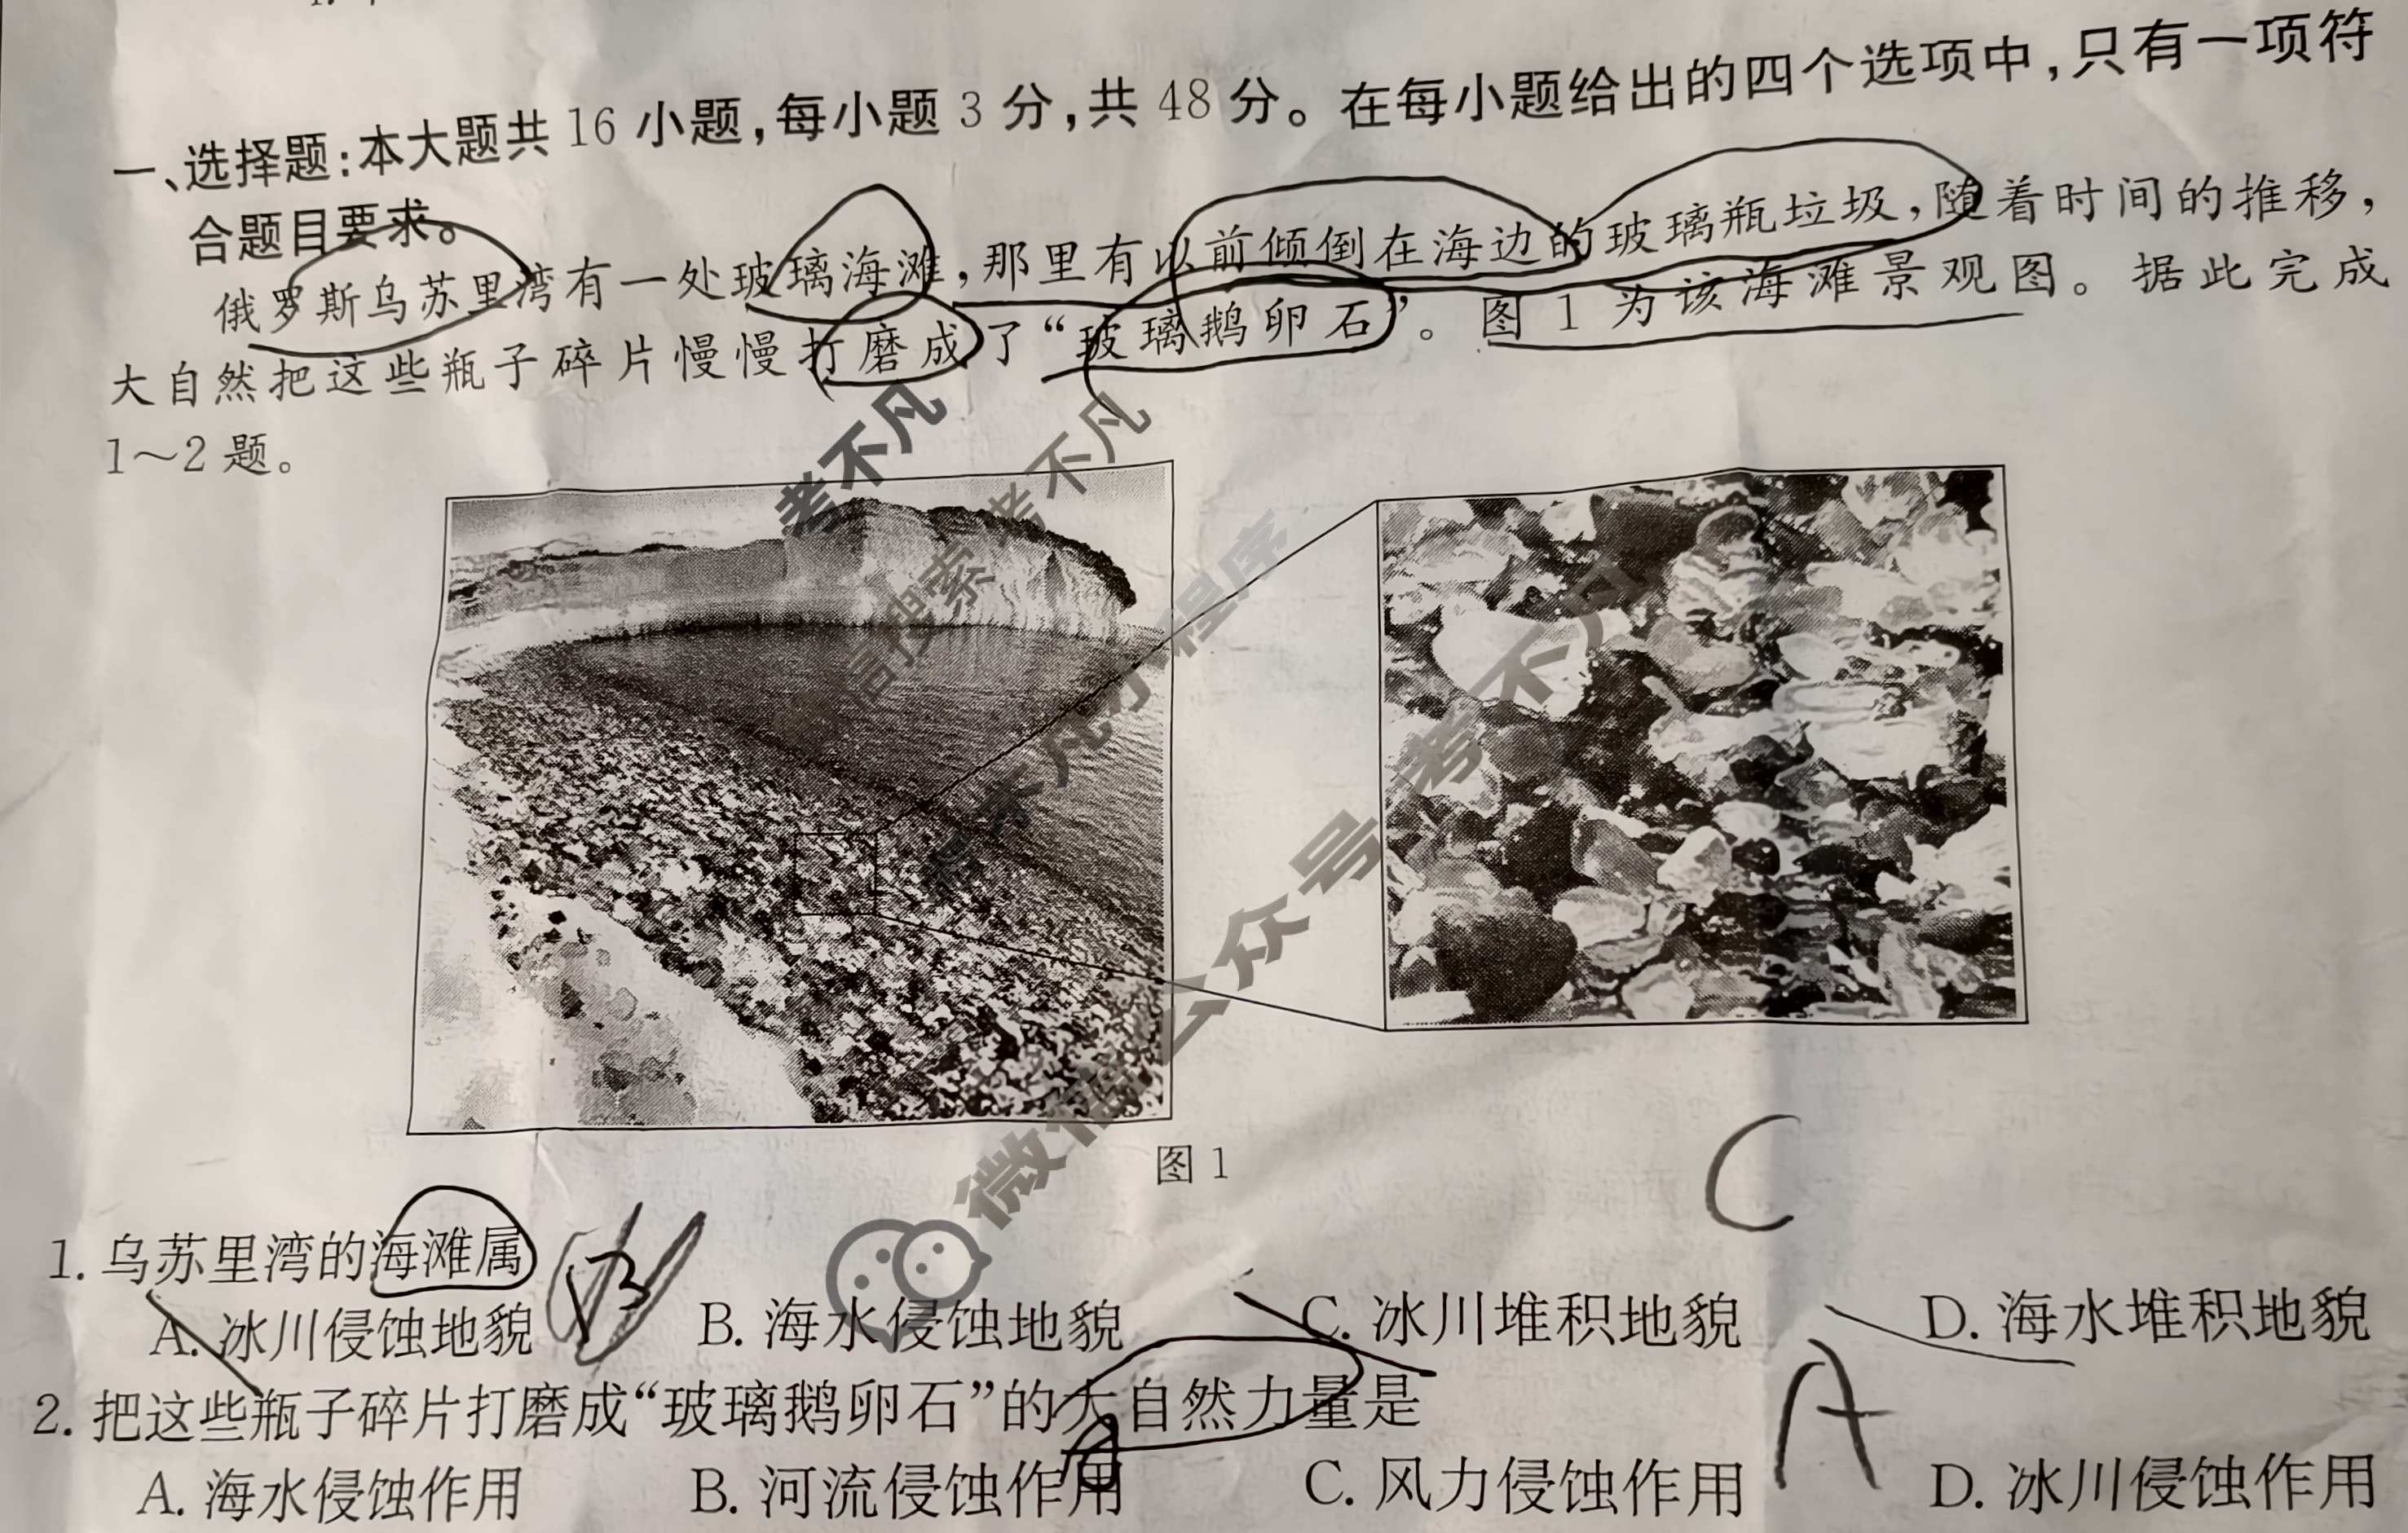 一、选择题:本大题共 16 小题,每小题 3 分,共 48 分。在每小题给出的四个选项中,只有一项符
合题目要求。
俄罗斯乌苏里湾有一处玻璃海滩,那里有以前倾倒在海边的玻璃瓶垃圾,随着时间的推移,
大自然把这些瓶子碎片慢慢打磨成了“玻璃鹅卵石”。图 1 为该海滩景观图。据此完成
1～2 题。
考不凡
微信搜索 考不凡
考不凡小程序
微信公众号 考不凡
图 1
C
1. 乌苏里湾的海滩属
B
A. 冰川侵蚀地貌 B. 海水侵蚀地貌 C. 冰川堆积地貌 D. 海水堆积地貌
A
2. 把这些瓶子碎片打磨成“玻璃鹅卵石”的大自然力量是
A. 海水侵蚀作用 B. 河流侵蚀作用 C. 风力侵蚀作用 D. 冰川侵蚀作用